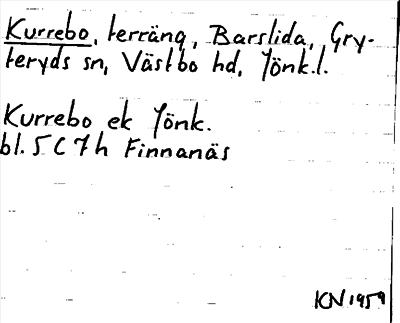 Kurrebo, terräng, Barslida, Gry-
teryds sn, Västbo hd, Jönk.l.
Kurrebo ek Jönk.
bl. 5 C 7 h Finnanäs
KN 1959